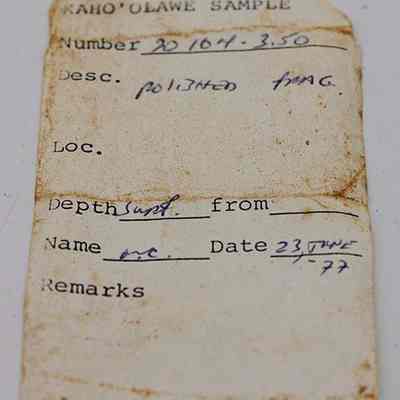 KAHO'OLAWE SAMPLE
Number 20 164 - 3.50
Desc. POLISHED FRAG.
Loc.
Depth surf. from
Name Date 23, JUNE
-77
Remarks